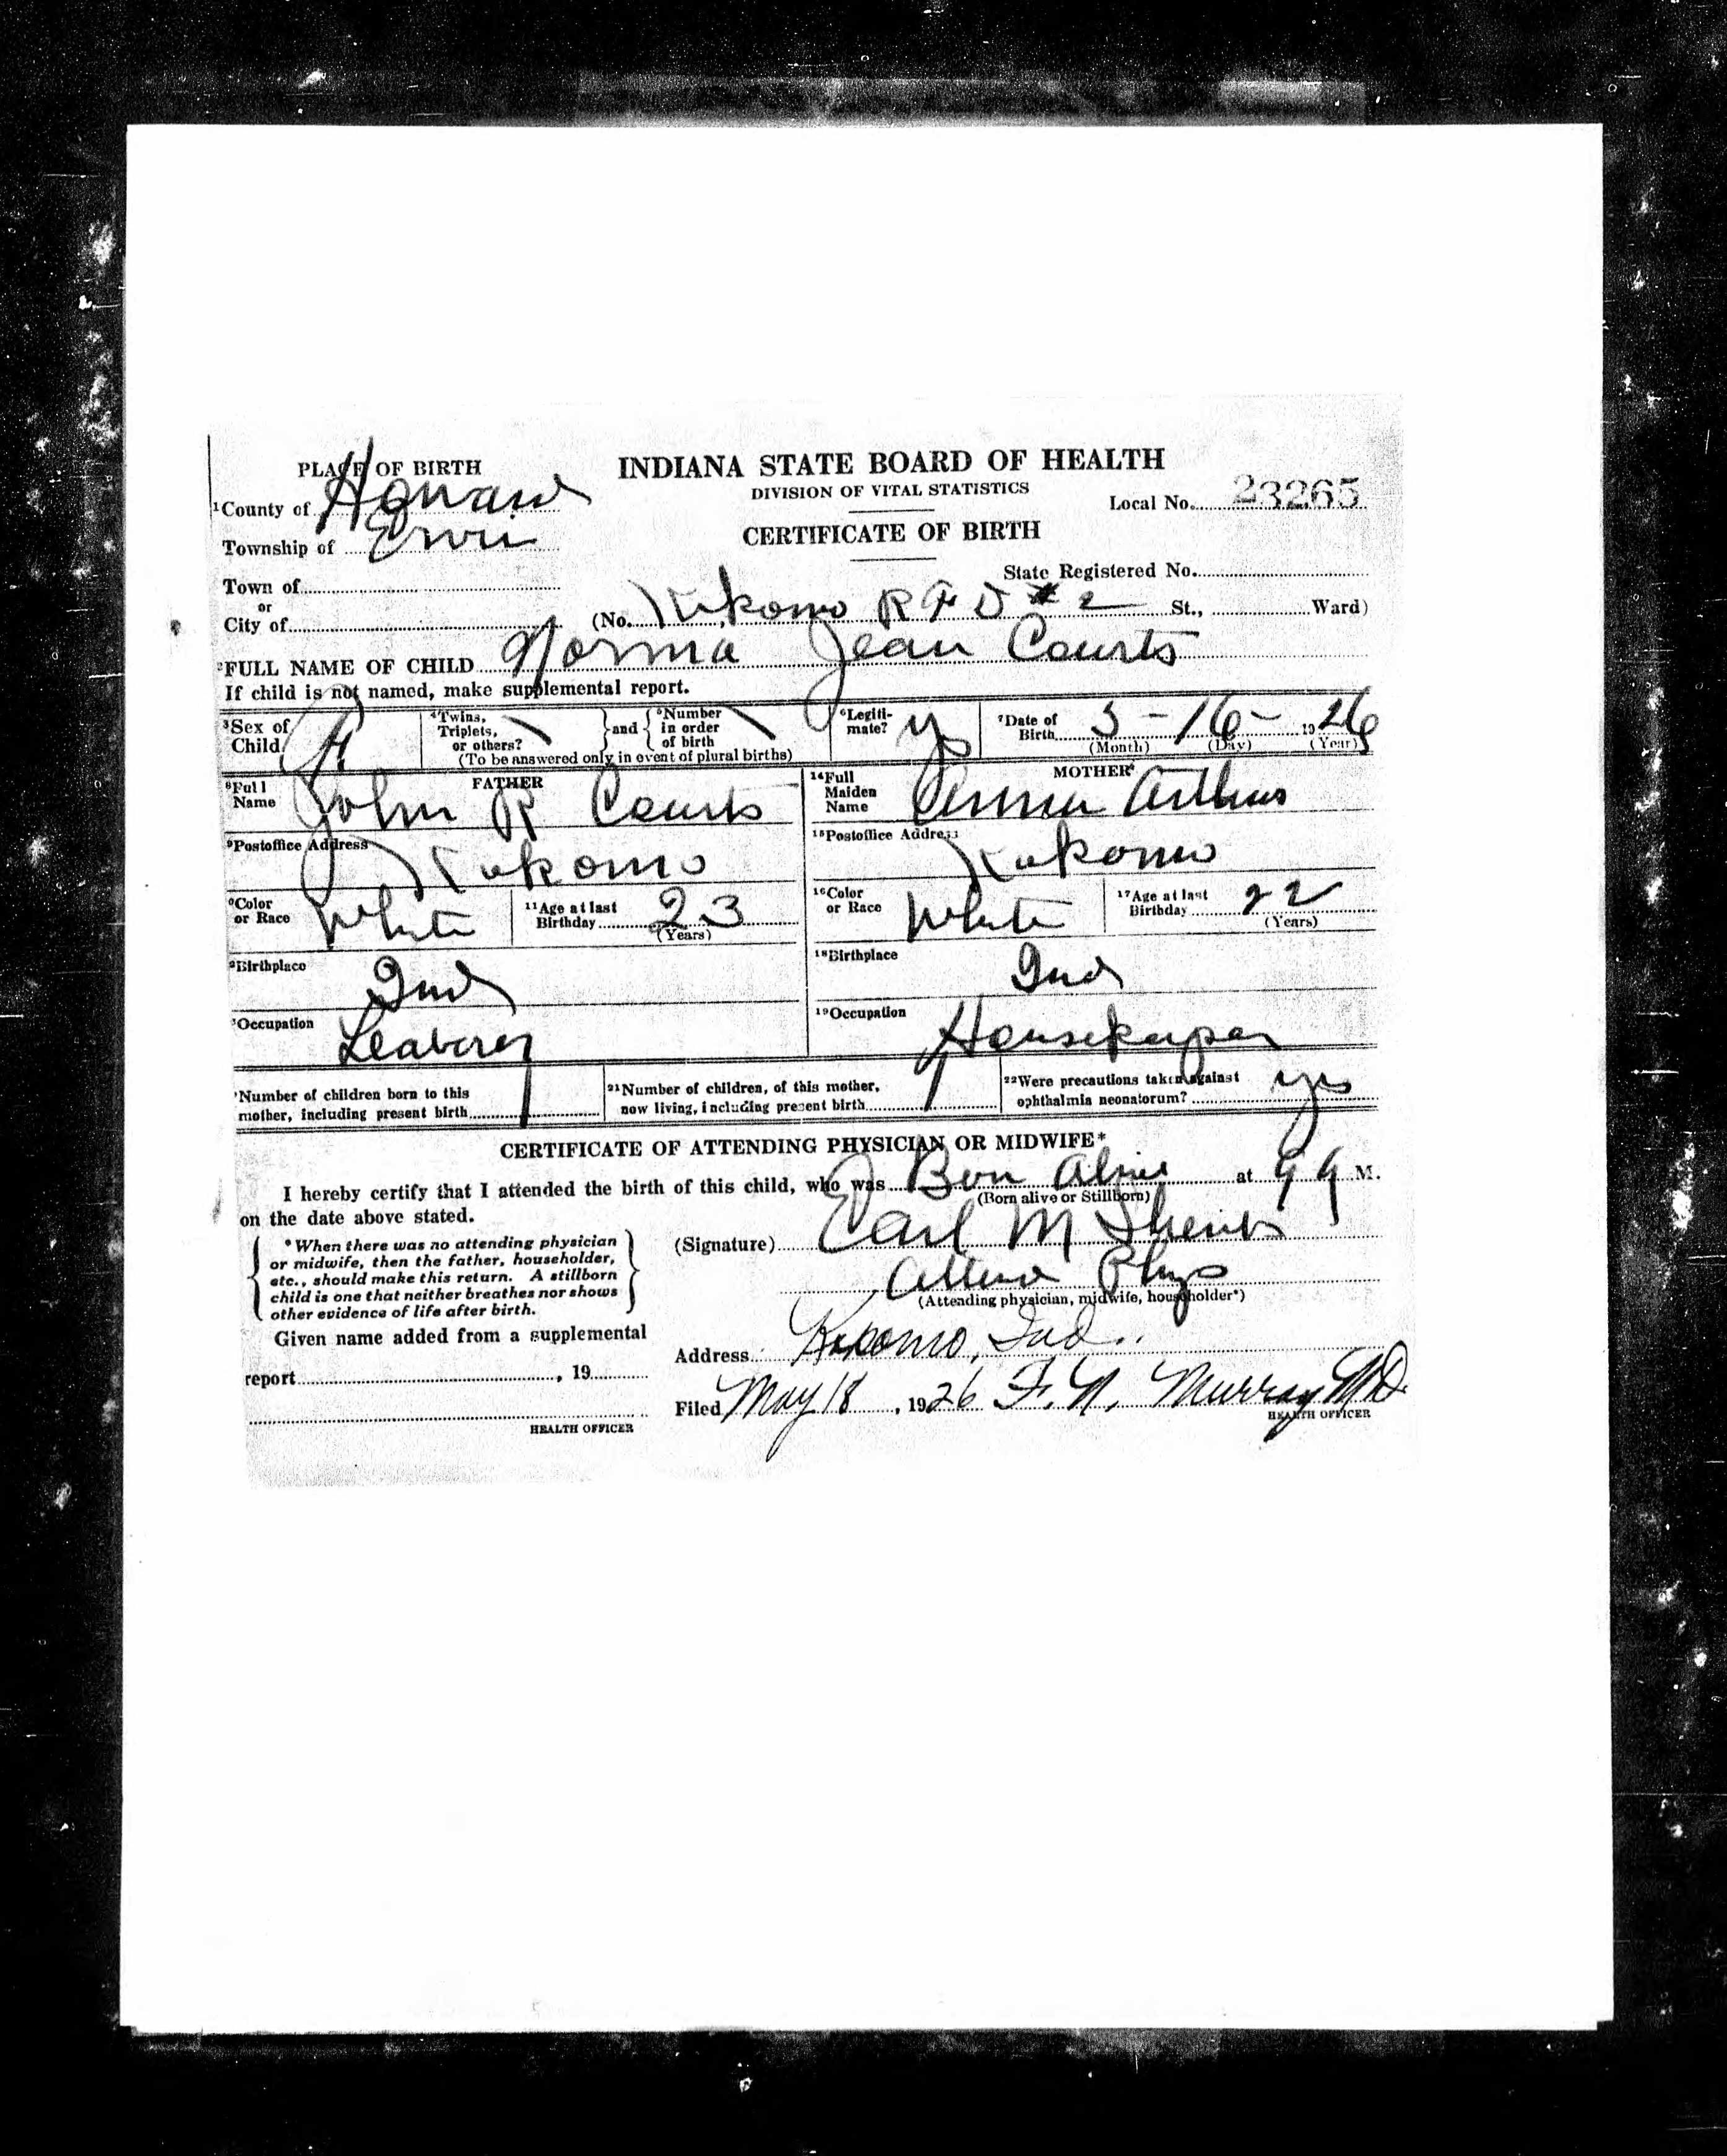 PLACE OF BIRTH
INDIANA STATE BOARD OF HEALTH
DIVISION OF VITAL STATISTICS
1County of Howard
Local No. 23265
Township of Ervin
CERTIFICATE OF BIRTH
Town of
State Registered No.
or
City of
(No. Kokomo R F D #2 St., Ward)
2FULL NAME OF CHILD Norma Jean Courts
If child is not named, make supplemental report.
3Sex of Child
4Twins, Triplets, or others? \ and 5Number in order of birth \
(To be answered only in event of plural births)
6Legiti-mate? ys
7Date of Birth 5-16- 1926
(Month) (Day) (Year)
FATHER
8Full Name John R Courts
9Postoffice Address Kokomo
0Color or Race White
11Age at last Birthday 23
(Years)
2Birthplace Ind
3Occupation Leaborer
MOTHER
14Full Maiden Name Anna Arthur
15Postoffice Address Kokomo
16Color or Race White
17Age at last Birthday 22
(Years)
18Birthplace Ind
19Occupation Housekeeper
Number of children born to this mother, including present birth 1
21Number of children, of this mother, now living, including present birth 1
22Were precautions taken against ophthalmia neonatorum? yes
CERTIFICATE OF ATTENDING PHYSICIAN OR MIDWIFE*
I hereby certify that I attended the birth of this child, who was Born Alive at 9 9 M.
(Born alive or Stillborn)
on the date above stated.
*When there was no attending physician
or midwife, then the father, householder,
etc., should make this return. A stillborn
child is one that neither breathes nor shows
other evidence of life after birth.
(Signature) Earl M
Attend Phys
(Attending physician, midwife, householder*)
Given name added from a supplemental
report , 19
HEALTH OFFICER
Address Kokomo, Ind.
Filed May 18, 1926 F. N. Murray MD
HEALTH OFFICER